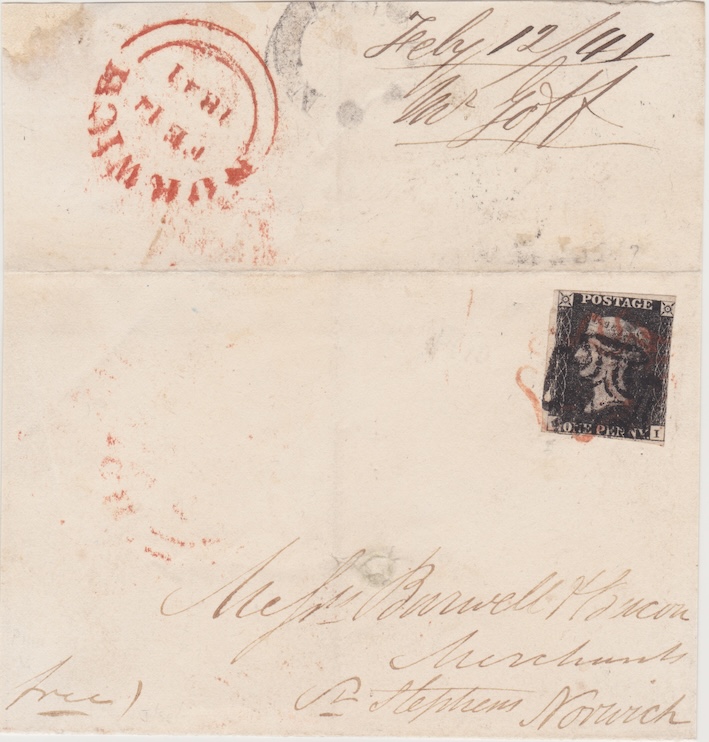 Feby 12/41
Mr Goff
NORWICH
FE 14
1841
POSTAGE
ONE PENNY
I
Messrs Barwell & Bacon
Merchants
St Stephens Norwich
free)